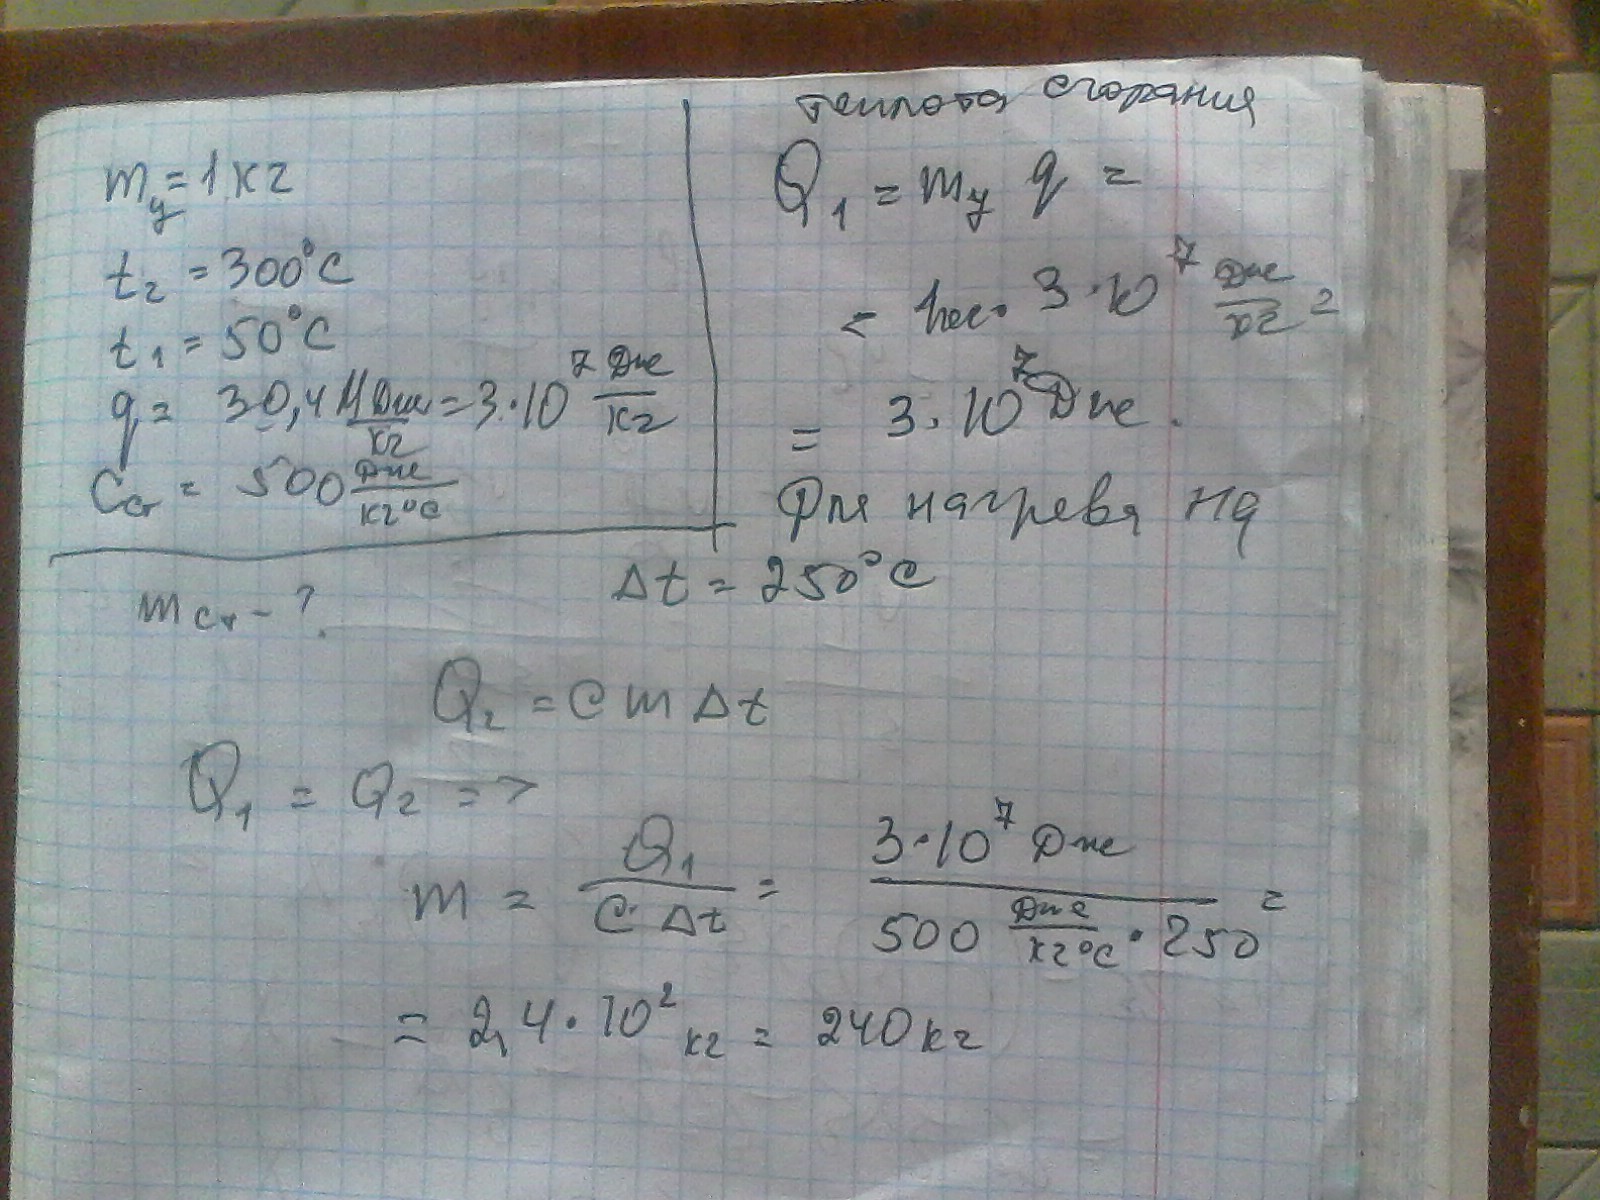 m_у = 1 кг
t₂ = 300°C
t₁ = 50°C
q = 30,4 МДж/кг = 3·10⁷ Дж/кг
C_ст = 500 Дж/кг°C
m ст - ?
теплота сгорания
Q₁ = m_у q =
= 1кг· 3·10⁷ Дж/кг =
= 3·10⁷ Дж.
Для нагрева на
Δt = 250°C
Q₂ = c m Δt
Q₁ = Q₂ =>
m = Q₁/(C·Δt) = 3·10⁷ Дж/(500 Дж/кг°C · 250) =
= 2,4·10² кг = 240 кг